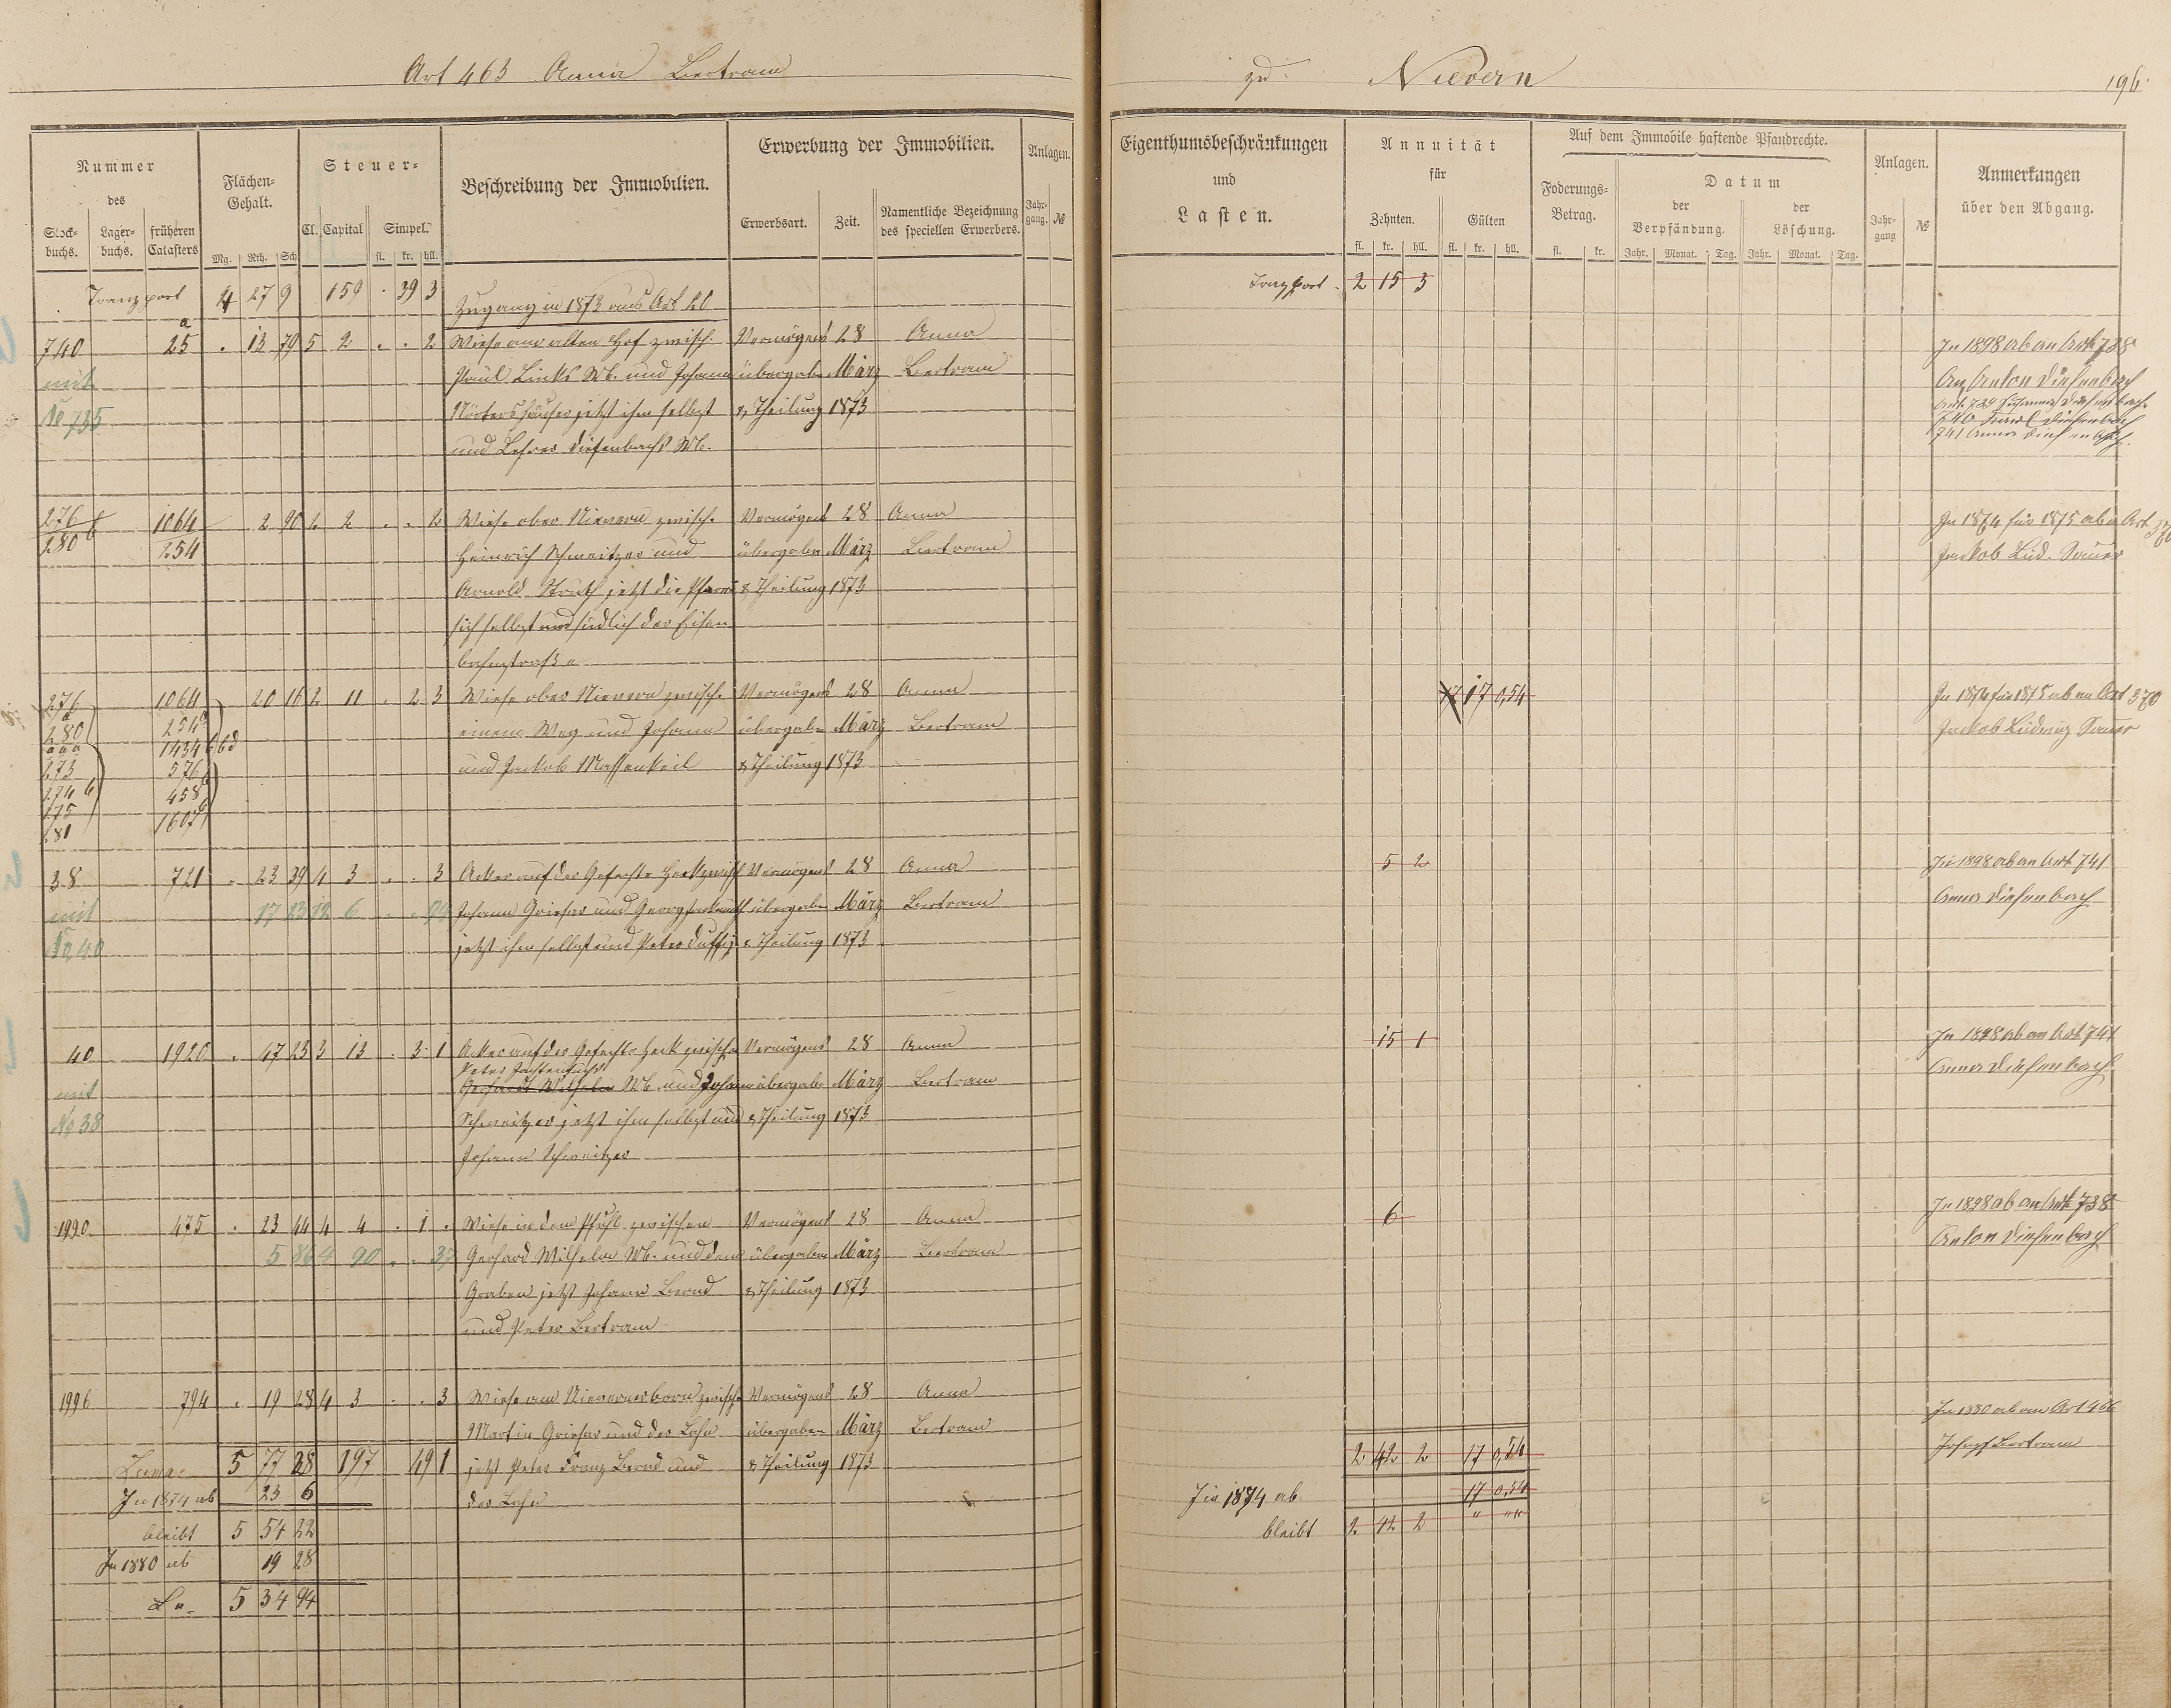 Art 463 Anna Bertram
zu Nievern
196
Nummer
des
Stock-
buchs.
Lager-
buchs.
früheren
Catasters
Flächen-
Gehalt.
Mg. Rth. Sch
Steuer-
Cl. Capital Simpel.
fl. kr. hll.
Beschreibung der Immobilien.
Erwerbung der Immobilien.
Erwerbsart. Zeit. Namentliche Bezeichnung
des speciellen Erwerbers.
Anlagen.
Jahr-
gang. №
Eigenthumsbeschränkungen
und
Lasten.
Annuität
für
Zehnten. Gülten
fl. kr. hll. fl. kr. hll.
Auf dem Immobile haftende Pfandrechte.
Foderungs-
Betrag.
fl. kr.
Datum
der
Verpfändung.
Jahr. Monat. Tag.
der
Löschung.
Jahr. Monat. Tag.
Anlagen.
Jahr-
gang №
Anmerkungen
über den Abgang.
Transport 4 27 9 159 . 39 3
Zugang in 1873 aus Art 20
Transport 2 15 3
740 25 a . 13 79 5 2 . . 2 Wiese am alten Hof zwisch. Vermögens 28 Anna
In 1898 ab an Art. 738
mit Paul Links Wb. und Johann übergabe März Bertram
An Anton Diefenbach
No 735 Nörtershäuser jetzt ihm selbst & Theilung 1873
740 Diefenbach
und Lehrer Diefenbachs Wb.
741 Anna Diefenbach.
276 1064 2 90 2 2 . . 2 Wiese ober Nievern zwisch. Vermögens 28 Anna
In 1874 für 1875 ab a Art 370
280 b 254 Heinrich Schweitzer und übergabe März Bertram
Jackob Lud. Sauer
Arnold Struth jetzt die Pfarrei & Theilung 1873
sich selbst und südlich der Eisen
bahnstraße
276 1064 20 16 2 11 . 2 3 Wiese ober Nievern zwisch. Vermögens 28 Anna
17 0,54
In 1874 für 1875 ab an Art 370
280 254 einem Weg und Johann übergabe März Bertram
Jackob Ludwig Sauer
1434
273 576 und Jackob Massenkeil & Theilung 1873
274 458
275
281 1607
38 721 . 23 39 4 3 . . 3 Acker auf der Gefechts Heck zwisch Vermögens 28 Anna
5 2
In 1898 ab an Art. 741
mit 17 23 12 6 Johann Griesar und Georg übergabe März Bertram
Anna Diefenbach
No. 40 jetzt ihm selbst und Peter Duffy & Theilung 1873
40 1920 . 47 23 3 13 . 3 1 Acker auf der Gefechts Heck zwische Vermögens 28 Anna
15 1
In 1898 ab an Art. 741
Peter
mit Gerhardt Wilhelm Wb. und Johann übergabe März Bertram
Anna Diefenbach
No 38 Schweitzer jetzt ihm selbst und & Theilung 1873
Johann Schweitzer
1990 475 . 23 44 4 4 . 1 . Wiese in dem Pfuhl zwischen Vermögens 28 Anna
6
In 1898 ab an Art. 738
5 86 4 90 . . 37 Gerhard Wilhelm Wb. und dem übergabe März Bertram
Anton Diefenbach
Graben jetzt Johann Bernd & Theilung 1873
und Peter Bertram
1996 794 . 19 28 4 3 . . 3 Wiese am Nievernerborn zwische Vermögens 28 Anna
In 1880 ab an Art 466
Martin Griesar und der Lahn übergabe März Bertram
Joseph Bertram
Summa 5 77 28 197 49 1 jetzt Peter Franz Bernd und & Theilung 1873
2 42 2 17 0,54
In 1874 ab 23 6 der Lahn
In 1874 ab 17 0.54
bleibt 5 54 22
bleibt 2 42 2 " ""
In 1880 ab 19 28
5 34 94